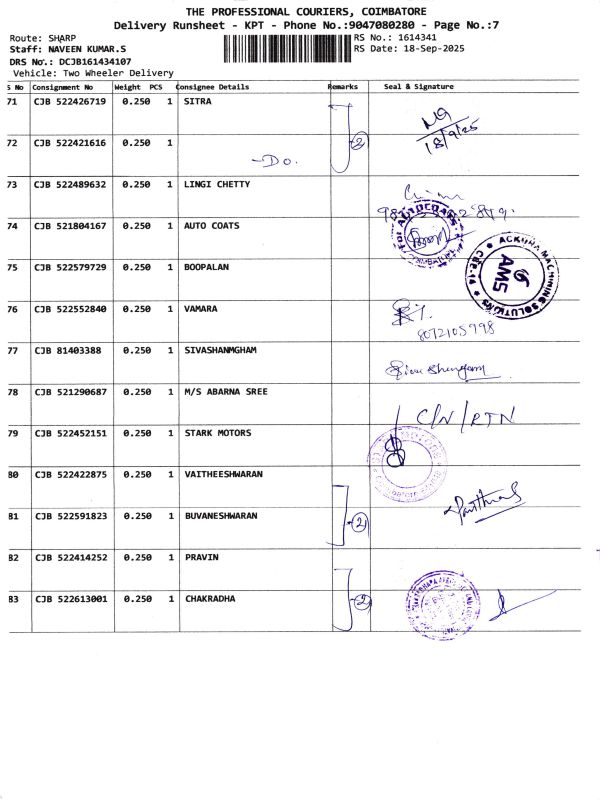 THE PROFESSIONAL COURIERS, COIMBATORE
Delivery Runsheet - KPT - Phone No.:9047080280 - Page No.:7
Route: SHARP
RS No.: 1614341
Staff: NAVEEN KUMAR.S
RS Date: 18-Sep-2025
DRS No.: DCJB161434107
Vehicle: Two Wheeler Delivery
S No Consignment No Weight PCS Consignee Details Remarks Seal & Signature
71 CJB 522426719 0.250 1 SITRA
18/9/25
72 CJB 522421616 0.250 1 2
-Do.
73 CJB 522489632 0.250 1 LINGI CHETTY
74 CJB 521804167 0.250 1 AUTO COATS
75 CJB 522579729 0.250 1 BOOPALAN
AMS
76 CJB 522552840 0.250 1 VAMARA
8072105998
77 CJB 81403388 0.250 1 SIVASHANMGHAM
78 CJB 521290687 0.250 1 M/S ABARNA SREE
C/N/RTN
79 CJB 522452151 0.250 1 STARK MOTORS
80 CJB 522422875 0.250 1 VAITHEESHWARAN
81 CJB 522591823 0.250 1 BUVANESHWARAN 2
82 CJB 522414252 0.250 1 PRAVIN
83 CJB 522613001 0.250 1 CHAKRADHA 2